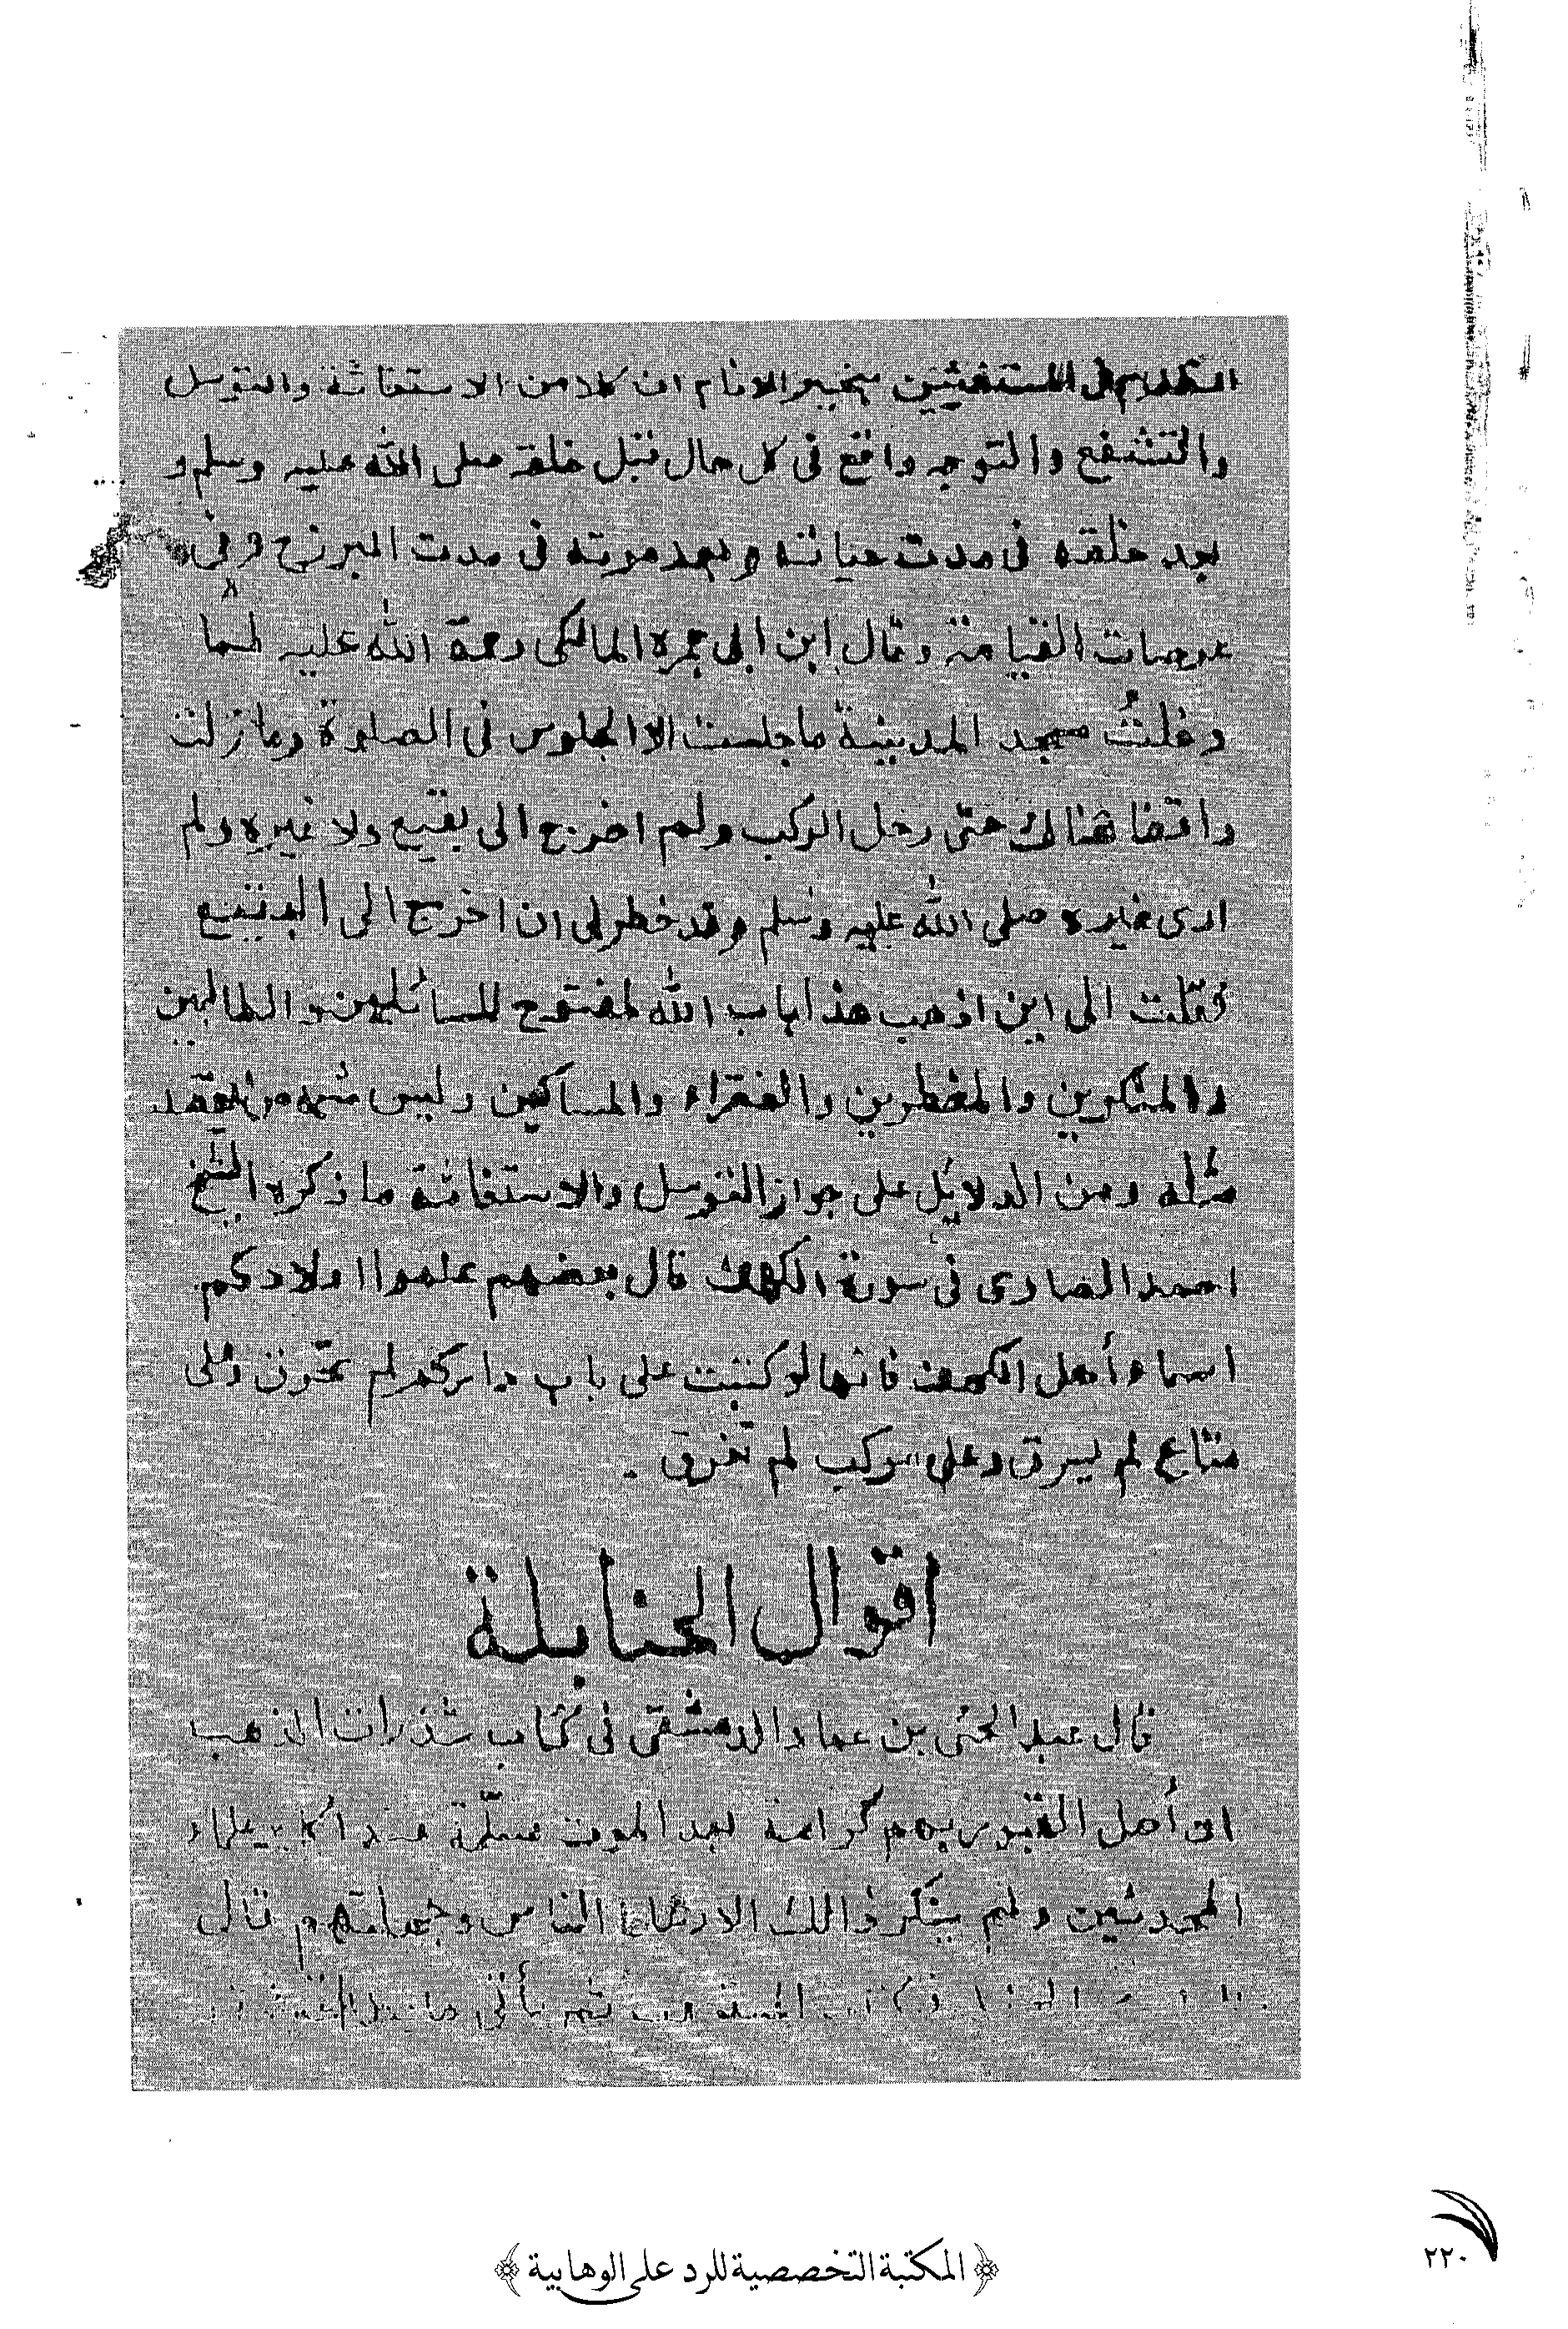 الظلام فى المستغيثين بخير الانام ان كلا من الاستغاثة والتوسل
والتشفع والتوجه واقع فى كل حال قبل خلقه صلى الله عليه وسلم و
بعد خلقه فى مدت حياته وبعد موته فى مدت البرزخ و فى
عرصات القيامة وقال ابن ابى جمره المالكى رحمة الله عليه لما
دخلتُ مسجد المدينة ماجلست الا الجلوس فى الصلوة ومازلت
واقفا هناك حتى رحل الركب ولم اخرج الى بقيع ولا غيره ولم
ارى غيره صلى الله عليه وسلم وقد خطر لى ان اخرج الى البقيع
فقلت الى اين اذهب هذا باب الله المفتوح للسائلين و الطالبين
والمنكرين والمضطرين والفقراء والمساكين وليس ثمه من يقصد
مثله ومن الدلايل على جواز التوسل والاستغاثة ما ذكره الشيخ
احمد الصاوى فى سورة الكهف قال بعضهم علموا اولادكم
اسماء أهل الكهف فانها لو كتبت على باب داركم لم تحرق وعلى
متاع لم يسرق وعلى مركب لم تغرق .
اقوال الحنابلة
قال عبد الحئى بن عماد الدمشقى فى كتاب شذرات الذهب
ان أهل القبور بهم كرامة بعد الموت مسلّمة عند اكابر علماء
المحدثين ولم ينكر ذالك الا رعاع الناس وجهلتهم قال
المكتبة التخصصية للرد على الوهابية
٢٢٠